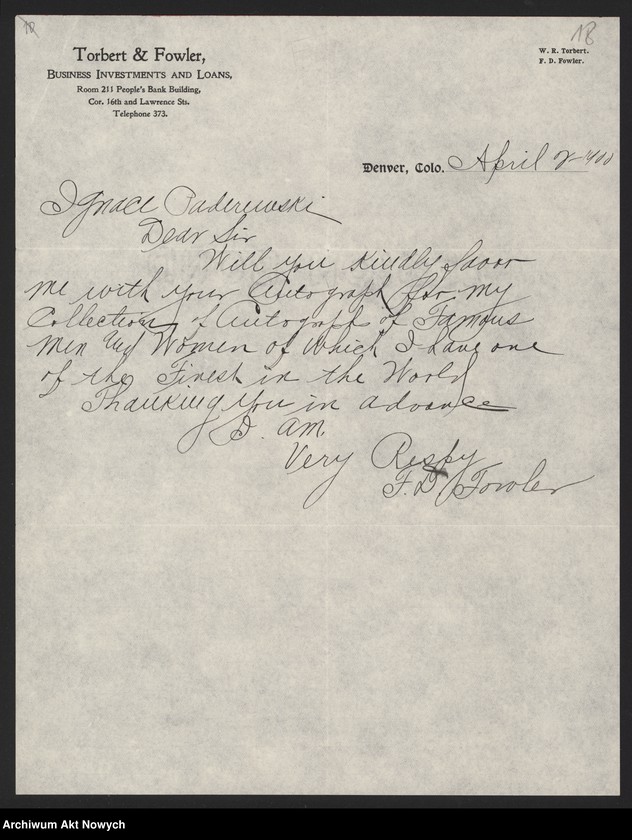 18
Torbert & Fowler,
Business Investments and Loans,
Room 211 People's Bank Building,
Cor. 16th and Lawrence Sts.
Telephone 373.
W. R. Torbert.
F. D. Fowler.
Denver, Colo. April 2 1900
Ignace Paderewski
Dear Sir
Will you kindly favor
me with your Autograph for my
Collection of Autographs of Famous
Men and Women of which I have one
of the Finest in the World
Thanking you in advance
I am
Very Respy
F. D. Fowler
Archiwum Akt Nowych